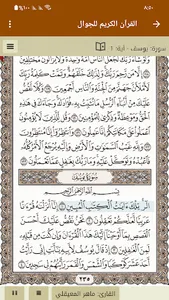 ٨:٥٠
القرآن الكريم للجوال
سورة: يوسف - آية: 1
وَلَوْ شَاءَ رَبُّكَ لَجَعَلَ النَّاسَ أُمَّةً وَاحِدَةً وَلَا يَزَالُونَ مُخْتَلِفِينَ
إِلَّا مَن رَّحِمَ رَبُّكَ وَلِذَٰلِكَ خَلَقَهُمْ وَتَمَّتْ كَلِمَةُ رَبِّكَ لَأَمْلَأَنَّ
جَهَنَّمَ مِنَ الْجِنَّةِ وَالنَّاسِ أَجْمَعِينَ ١١٩ وَكُلًّا نَّقُصُّ عَلَيْكَ
مِنْ أَنبَاءِ الرُّسُلِ مَا نُثَبِّتُ بِهِ فُؤَادَكَ وَجَاءَكَ فِي هَٰذِهِ الْحَقُّ
وَمَوْعِظَةٌ وَذِكْرَىٰ لِلْمُؤْمِنِينَ ١٢٠ وَقُل لِّلَّذِينَ لَا يُؤْمِنُونَ
اعْمَلُوا عَلَىٰ مَكَانَتِكُمْ إِنَّا عَامِلُونَ ١٢١ وَانتَظِرُوا إِنَّا مُنتَظِرُونَ ١٢٢
وَلِلَّهِ غَيْبُ السَّمَاوَاتِ وَالْأَرْضِ وَإِلَيْهِ يُرْجَعُ الْأَمْرُ كُلُّهُ
فَاعْبُدْهُ وَتَوَكَّلْ عَلَيْهِ وَمَا رَبُّكَ بِغَافِلٍ عَمَّا تَعْمَلُونَ ١٢٣
سُورَةُ يُوسُفَ
بِسْمِ اللَّهِ الرَّحْمَٰنِ الرَّحِيمِ
الر تِلْكَ آيَاتُ الْكِتَابِ الْمُبِينِ ١ إِنَّا أَنزَلْنَاهُ قُرْآنًا
عَرَبِيًّا لَّعَلَّكُمْ تَعْقِلُونَ ٢ نَحْنُ نَقُصُّ عَلَيْكَ أَحْسَنَ
الْقَصَصِ بِمَا أَوْحَيْنَا إِلَيْكَ هَٰذَا الْقُرْآنَ وَإِن كُنتَ
مِن قَبْلِهِ لَمِنَ الْغَافِلِينَ ٣ إِذْ قَالَ يُوسُفُ لِأَبِيهِ يَا أَبَتِ إِنِّي
رَأَيْتُ أَحَدَ عَشَرَ كَوْكَبًا وَالشَّمْسَ وَالْقَمَرَ رَأَيْتُهُمْ لِي سَاجِدِينَ ٤
٢٣٥
القارئ: ماهر المعيقلي